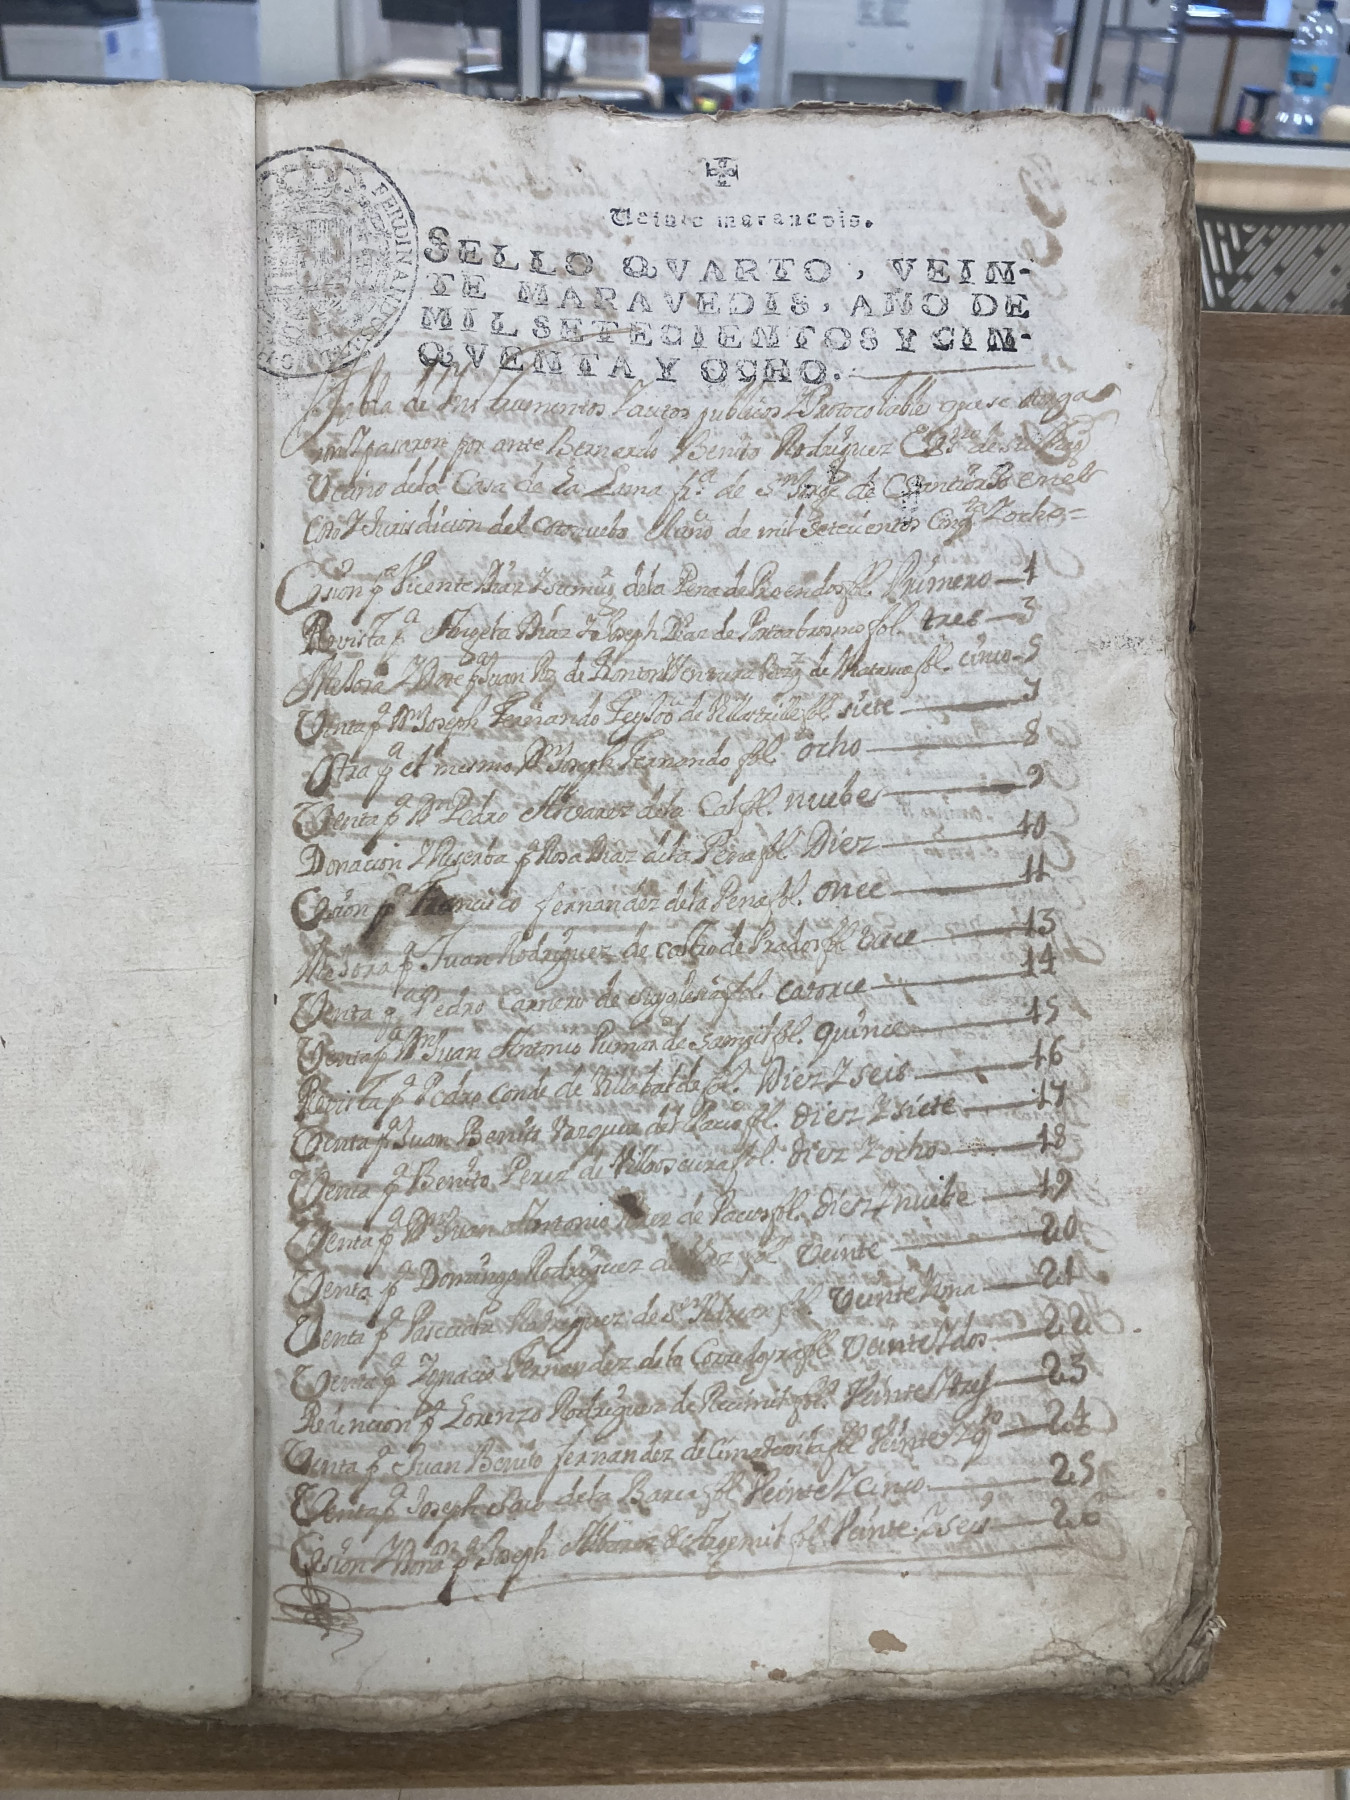 Veinte maravedis.
SELLO QVARTO, VEIN-
TE MARAVEDIS, AÑO DE
MIL SETECIENTOS Y CIN-
QVENTA Y OCHO.
FERDINANDUS
Tabla de Instrumentos Y autos publicos Y Protocolables que se otorga
ron Y pasaron por ante Bernardo Benito Rodriguez
Vecino dela Casa de La Lama de de
Coto Y Jurisdicion del el año de mil setecientos Cinqta Y ocho =
Cesion pa Vicente Diaz dela Pena de fol. Primero — 1
Revista pa Angela Diaz Joseph Diaz de fol. tres — 3
Juan de fol. cinco — 5
Venta pa Dn Joseph Fernando fol. siete — 7
Otra pa el mesmo Dn Joseph Fernando fol. ocho — 8
Venta pa Dn Pedro Alvarez dela Cal fol. nuebe — 9
Donacion pa Rosa Diaz dela Pena fol. Diez — 10
Cesion pa Francisco fernandez dela Pena fol. once — 11
pa Juan Rodriguez de castro de Prados fol. trece — 13
Venta pa Pedro Carnero de fol. catorce — 14
Venta pa Dn Juan Antonio de fol. quince — 15
Revista pa Pedro Conde de Villabalde fol. Diez Y seis — 16
Venta pa Juan Benito Vazquez del fol. diez Y siete — 17
Venta pa Benito Perez de Villaoscura fol. diez Y ocho — 18
Venta pa Dn Juan Antonio de Pacios fol. diez Y nuebe — 19
Venta pa Domingo Rodriguez de fol. Veinte — 20
Venta pa Pascual Rodriguez de fol. Veinte Y una — 21
Venta pa Ygnacio Fernandez dela Corredoyra fol. Veinte Y dos — 22
Redencion pa Lorenzo Rodriguez de fol. Veinte Y tres — 23
Venta pa Juan Benito fernandez de fol. Veinte Y qto — 24
Venta pa Joseph Saco dela Barca fol. Veinte Y cinco — 25
Cesion pa Joseph Albarez de Argemil fol. Veinte Y seis — 26